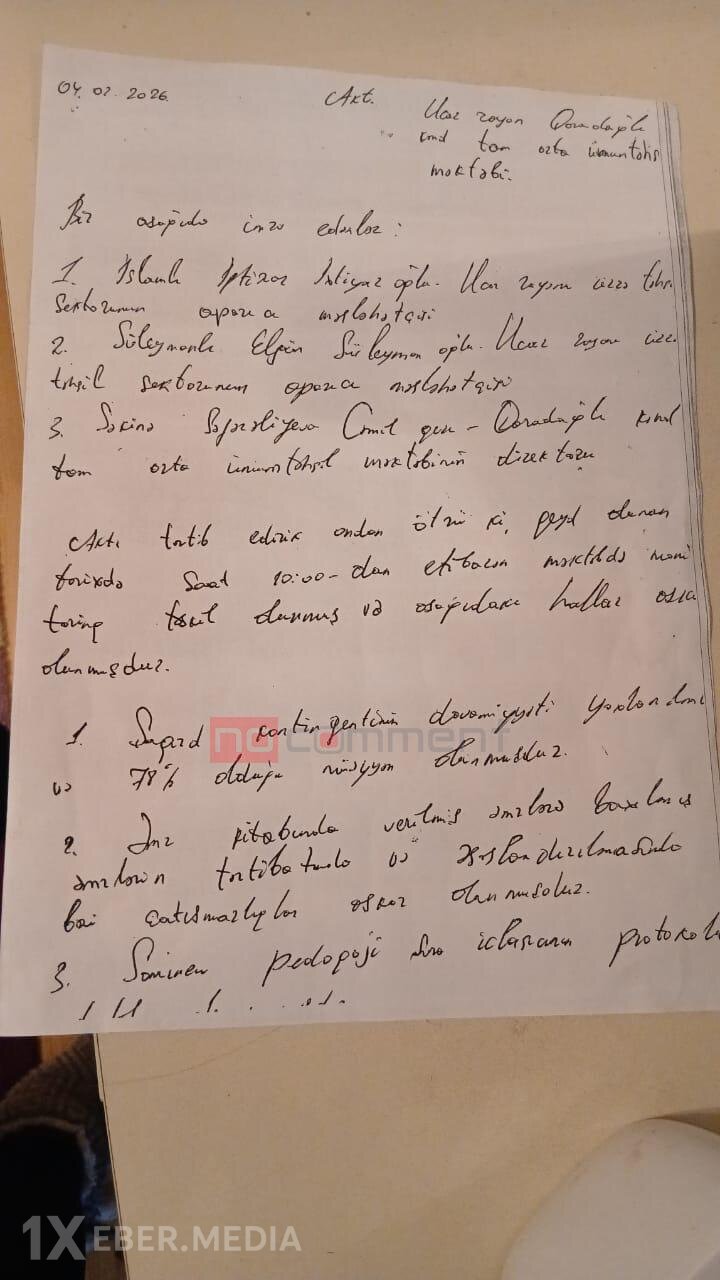 04.02.2026. Akt. Ucar rayon Qaradağlı
kənd tam orta ümumtəhsil
məktəbi.
Biz aşağıda imza edənlər:
1. İslamlı İftixar İmtiyaz oğlu. Ucar rayonu üzrə təhsil
Sektorunun aparıcı məsləhətçisi
2. Süleymanlı Elşən Süleyman oğlu. Ucar rayonu üzrə
təhsil sektorunun aparıcı məsləhətçisi
3. Səkinə Cəmil qızı - Qaradağlı kənd
tam orta ümumtəhsil məktəbinin direktoru
Aktı tərtib edirik ondan ötrü ki, qeyd olunan
tarixdə saat 10:00-dan etibarən məktəbdə moni
toring təşkil olunmuş və aşağıdakı hallar aşka
olunmuşdur.
1. Şagird kontingentinin davamiyyəti yoxlanılmış
və 78% olduğu müəyyən olunmuşdur.
2. Əmr kitabında verilmiş əmrlərə baxılmış
əmrlərin tərtibatında və rəsmiləşdirilməsində
bəzi çatışmazlıqlar aşkar olunmuşdur.
3. pedaqoji şura iclasının protokolu
no comment
1XEBER.MEDIA